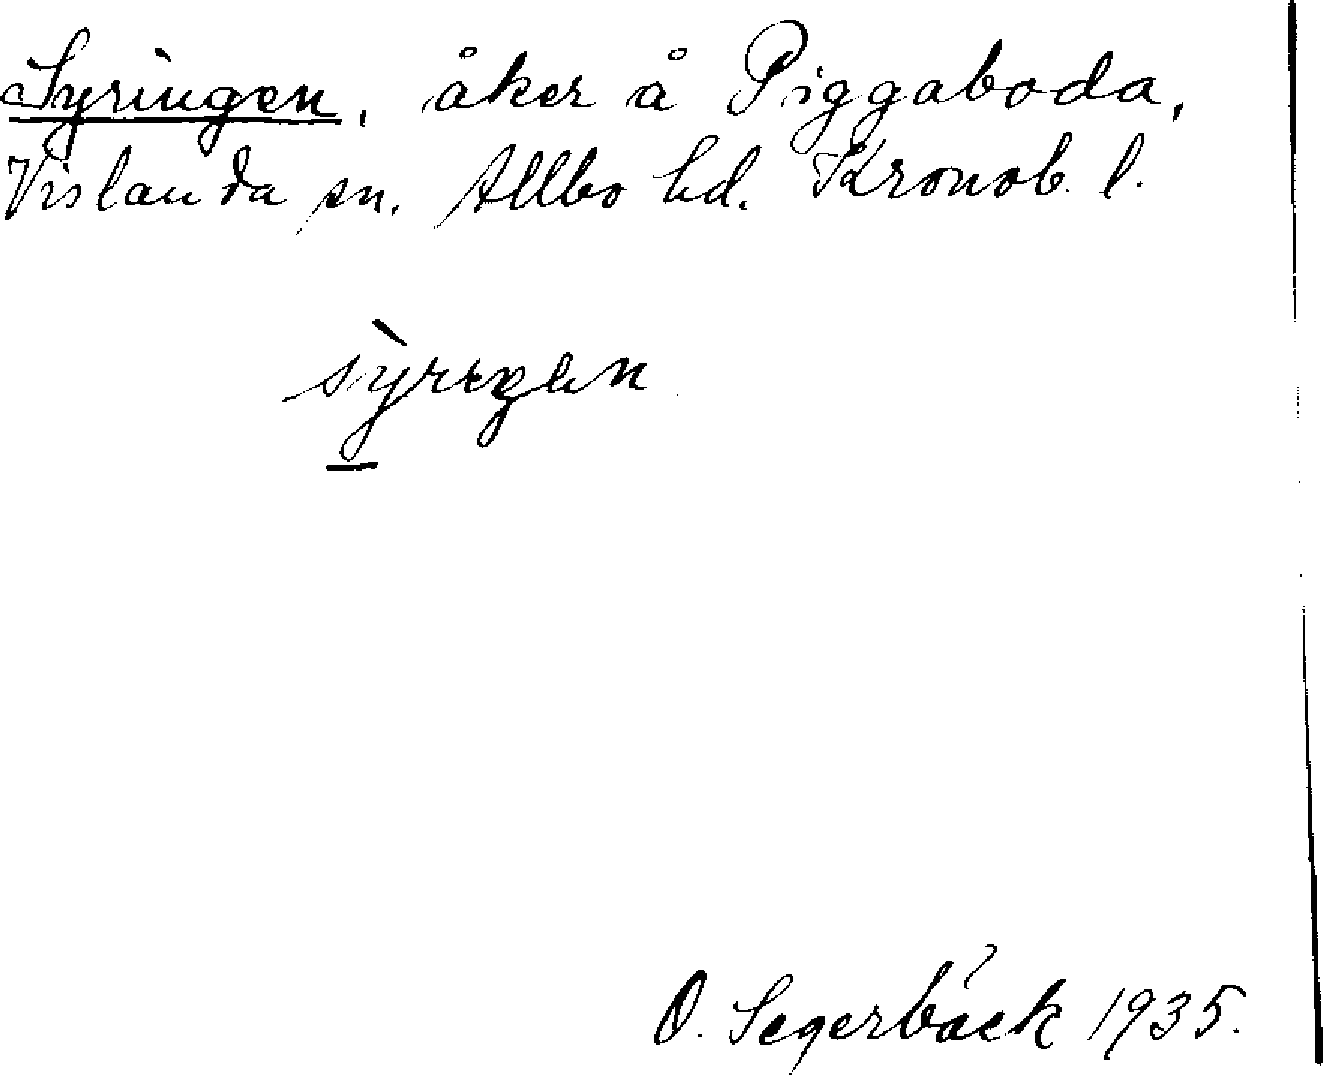 Syringen, åker å Piggaboda,
Vislanda sn. Allbo hd. Kronob. l.
O. Segerbäck 1935.